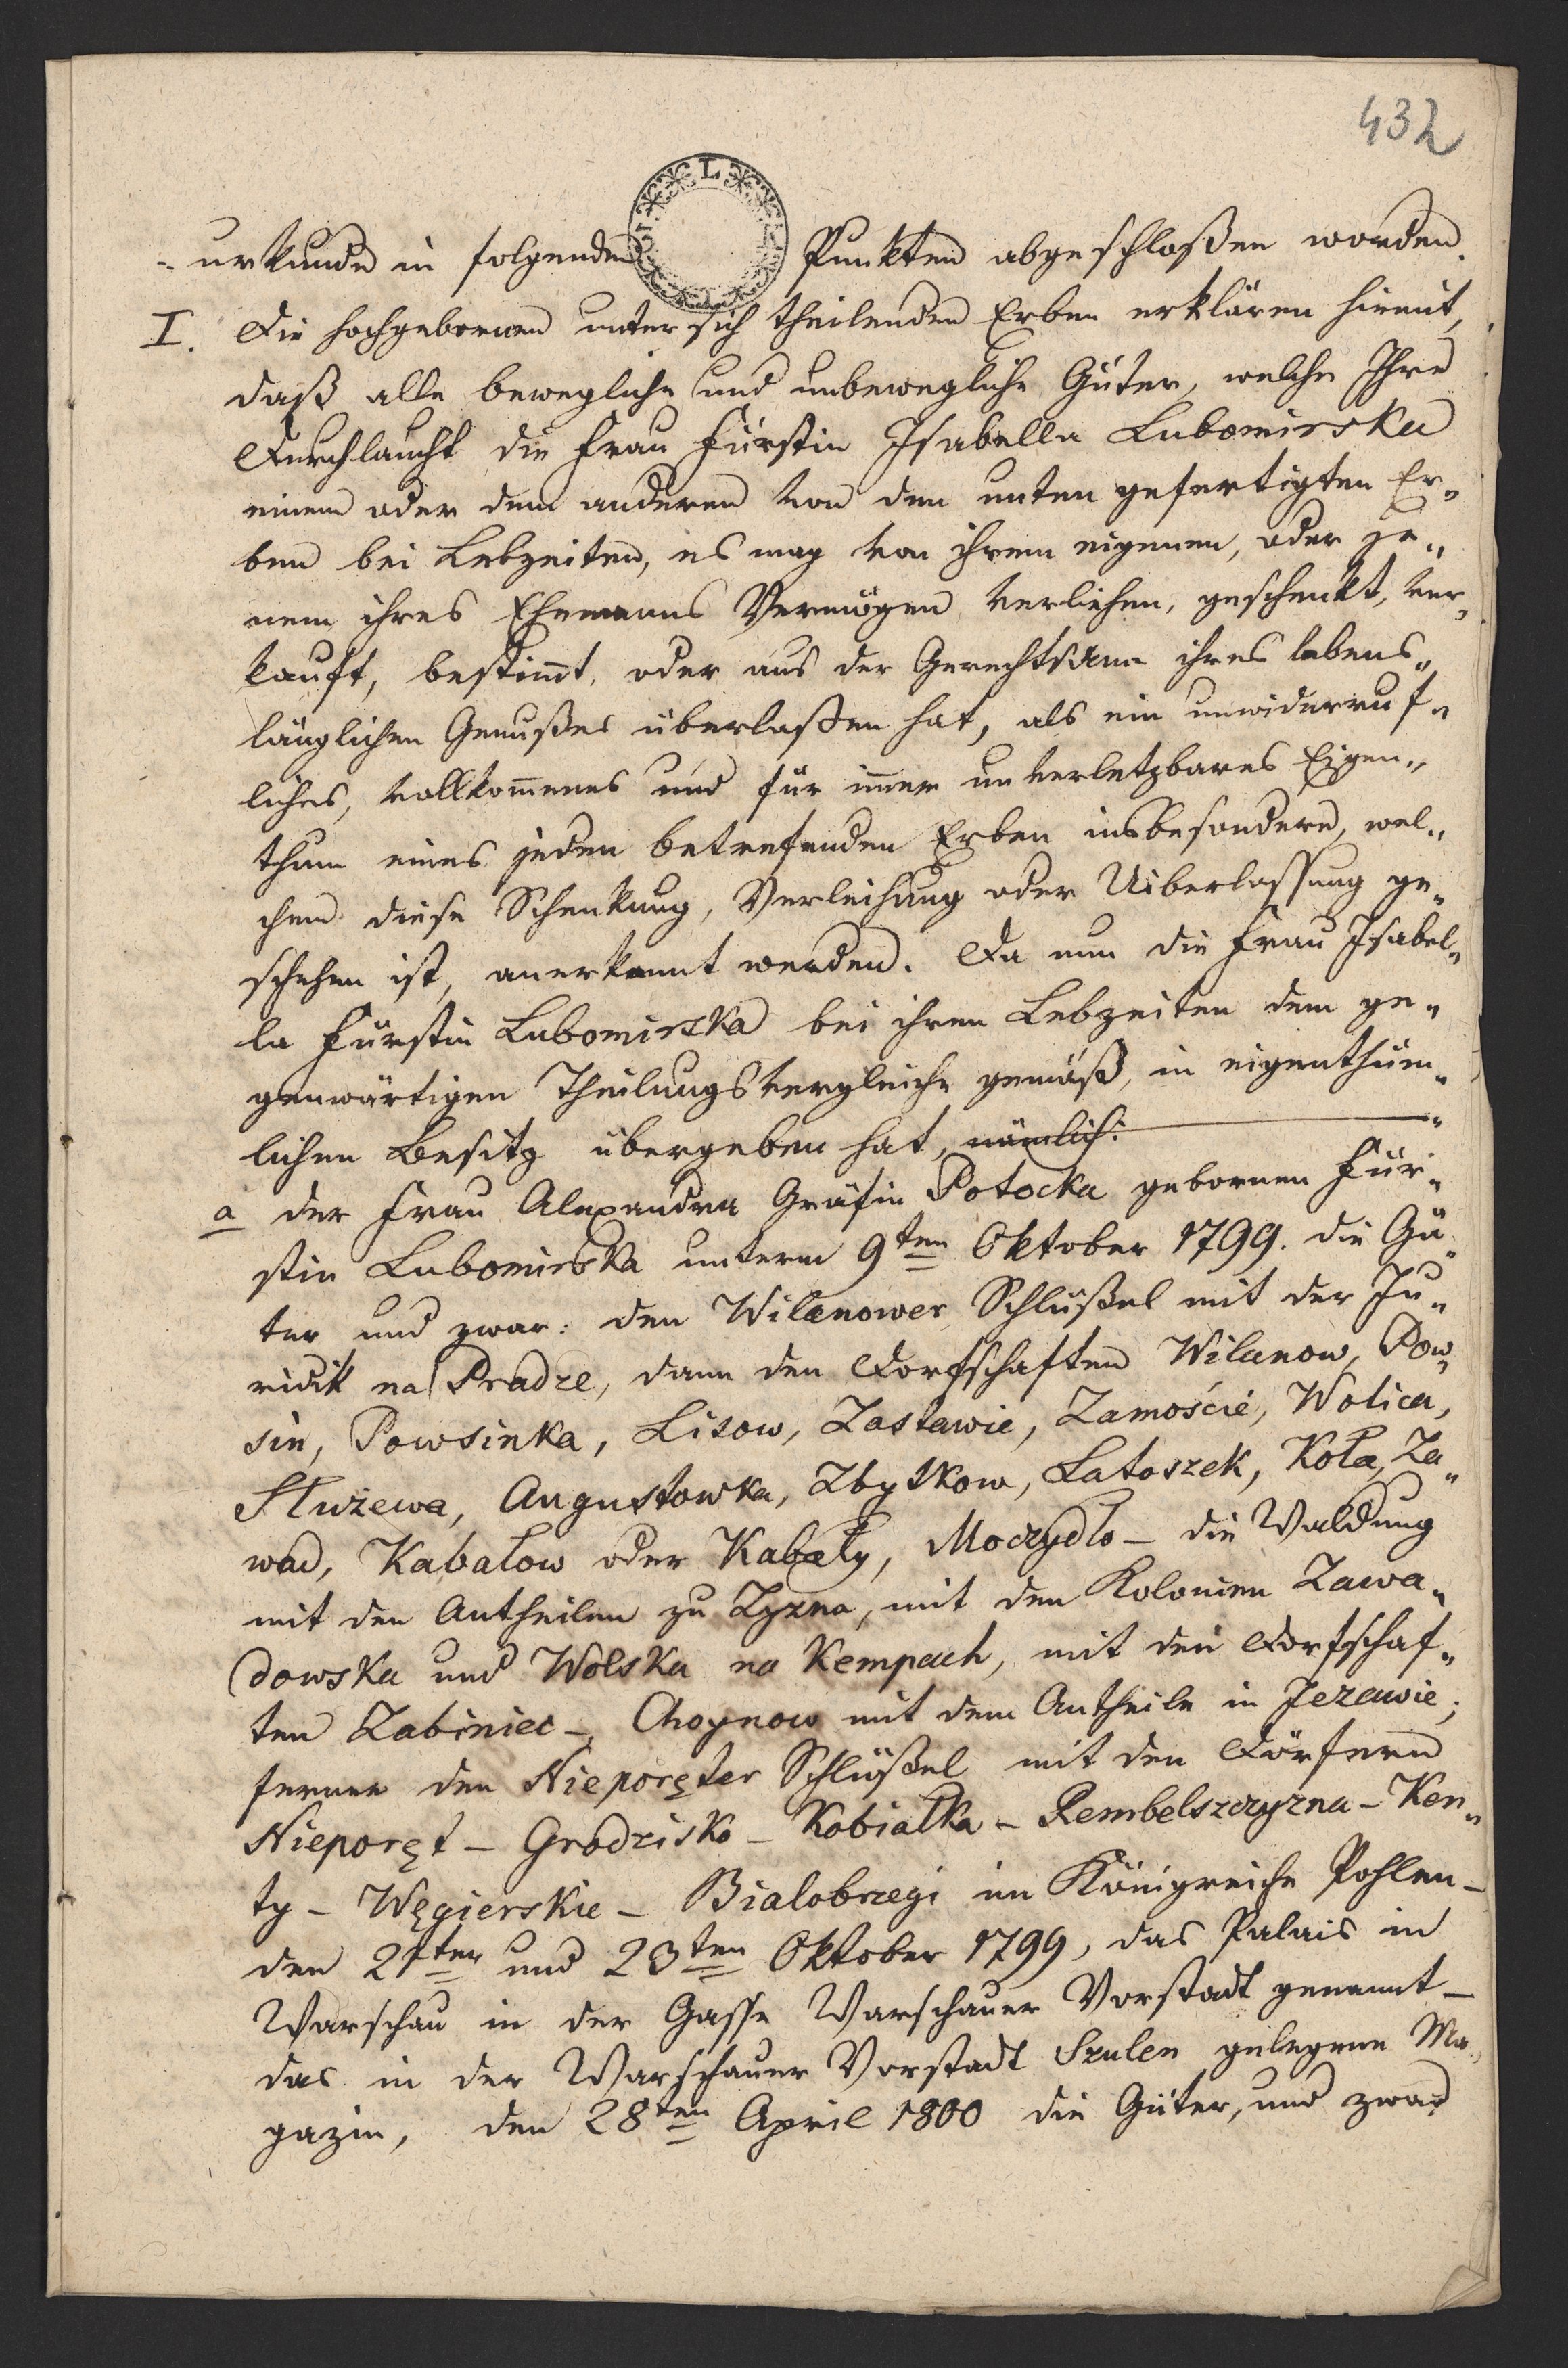 432
-urkunde in folgenden Punkten abgeschloßen worden.
I. Die hochgebornen unter sich theilenden Erben erklären hiemit,
daß alle bewegliche und unbewegliche Güter, welche Ihre
Durchlaucht die Frau Fürstin Isabella Lubomirska
einem oder dem anderen von den unten gefertigten Er„
ben bei Lebzeiten, es mag von ihrem eigenen, oder je„
nem ihres Ehemanns Vermögen verliehen, geschenkt, ver„
kauft, bestim̄t, oder aus der Gerechtsame ihres lebens„
länglichen Genußes überlaßen hat, als ein unwiderruf„
liches, vollkom̄enes und für im̄er unverletzbares Eigen„
thum eines jeden betrefenden Erben insbesondere, wel„
chem diese Schenkung, Verleihung oder Uiberlassung ge„
schehen ist, anerkannt werden. Da nun die Frau Isabel„
la Fürstin Lubomirska bei ihren Lebzeiten dem ge„
genwärtigen Theilungsvergleiche gemäß, in eigenthüm„
lichen Besitz übergeben hat, nämlich:
a der Frau Alexandra Gräfin Potocka gebornen Für„
stin Lubomirska unterm 9ten Oktober 1799. die Gü„
ter und zwar: den Wilanower Schlüßel mit der Ju„
ridik na Pradze, dann den Dorfschaften Wilanow, Pow„
sin, Powsinka, Lisow, Zastawie, Zamoście, Wolica,
Służewa, Augustowka, Zbytkow, Latoszek, Koła, Za„
wad, Kabatow oder Kabaty, Moczydło – die Waldung
mit den Antheilen zu Zyzna, mit den Kolonien Zawa„
dowska und Wolska na Kempach, mit den Dorfschaf„
ten Zabiniec – Choynow mit dem Antheile in Jezewie;
ferner den Nieporęter Schlüßel mit den Dörfern
Nieporęt – Grodzisko – Kobiałka – Rembelszczyzna – Ken„
ty – Węgierskie – Bialobrzegi im Königreiche Pohlen –
den 21ten und 23ten Oktober 1799, das Palais in
Warschau in der Gasse Warschauer Vorstadt genannt –
das in der Warschauer Vorstadt Szulen gelegene Ma„
gazin, den 28ten April 1800 die Güter, und zwar